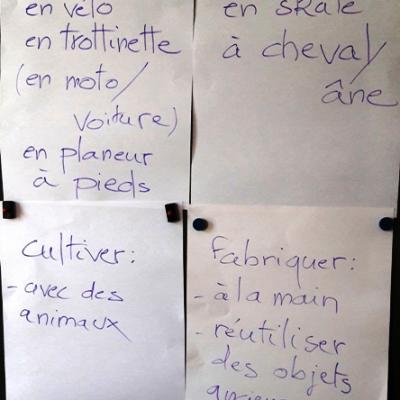 en vélo
en trottinette
(en moto/
voiture)
en planeur
à pieds
en skate
à cheval/
âne
Cultiver:
- avec des
animaux
Fabriquer:
- à la main
- réutiliser
des objets